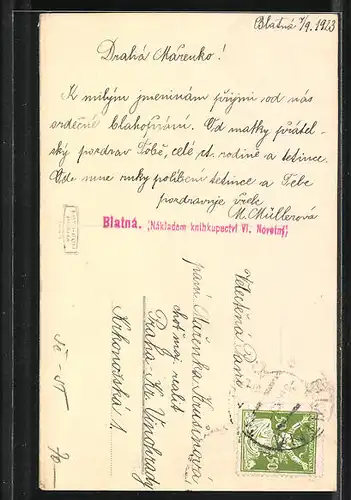 Blatná 7/9. 1923
Drahá Mářenko!
K milým jmeninám přijmi od nás
srdečné blahopřání. Od matky přátel-
ský pozdrav Tobě, celé ct. rodině a tetince.
Ode mne ruky políbení tetince a Tebe
pozdravuje vřele
M. Müllerová
Blatná. (Nákladem knihkupectví Vl. Novotný)
Velectěná Paní
paní Mařenka
choť
Praha Kr. Vinohrady
Krkonošská 1.